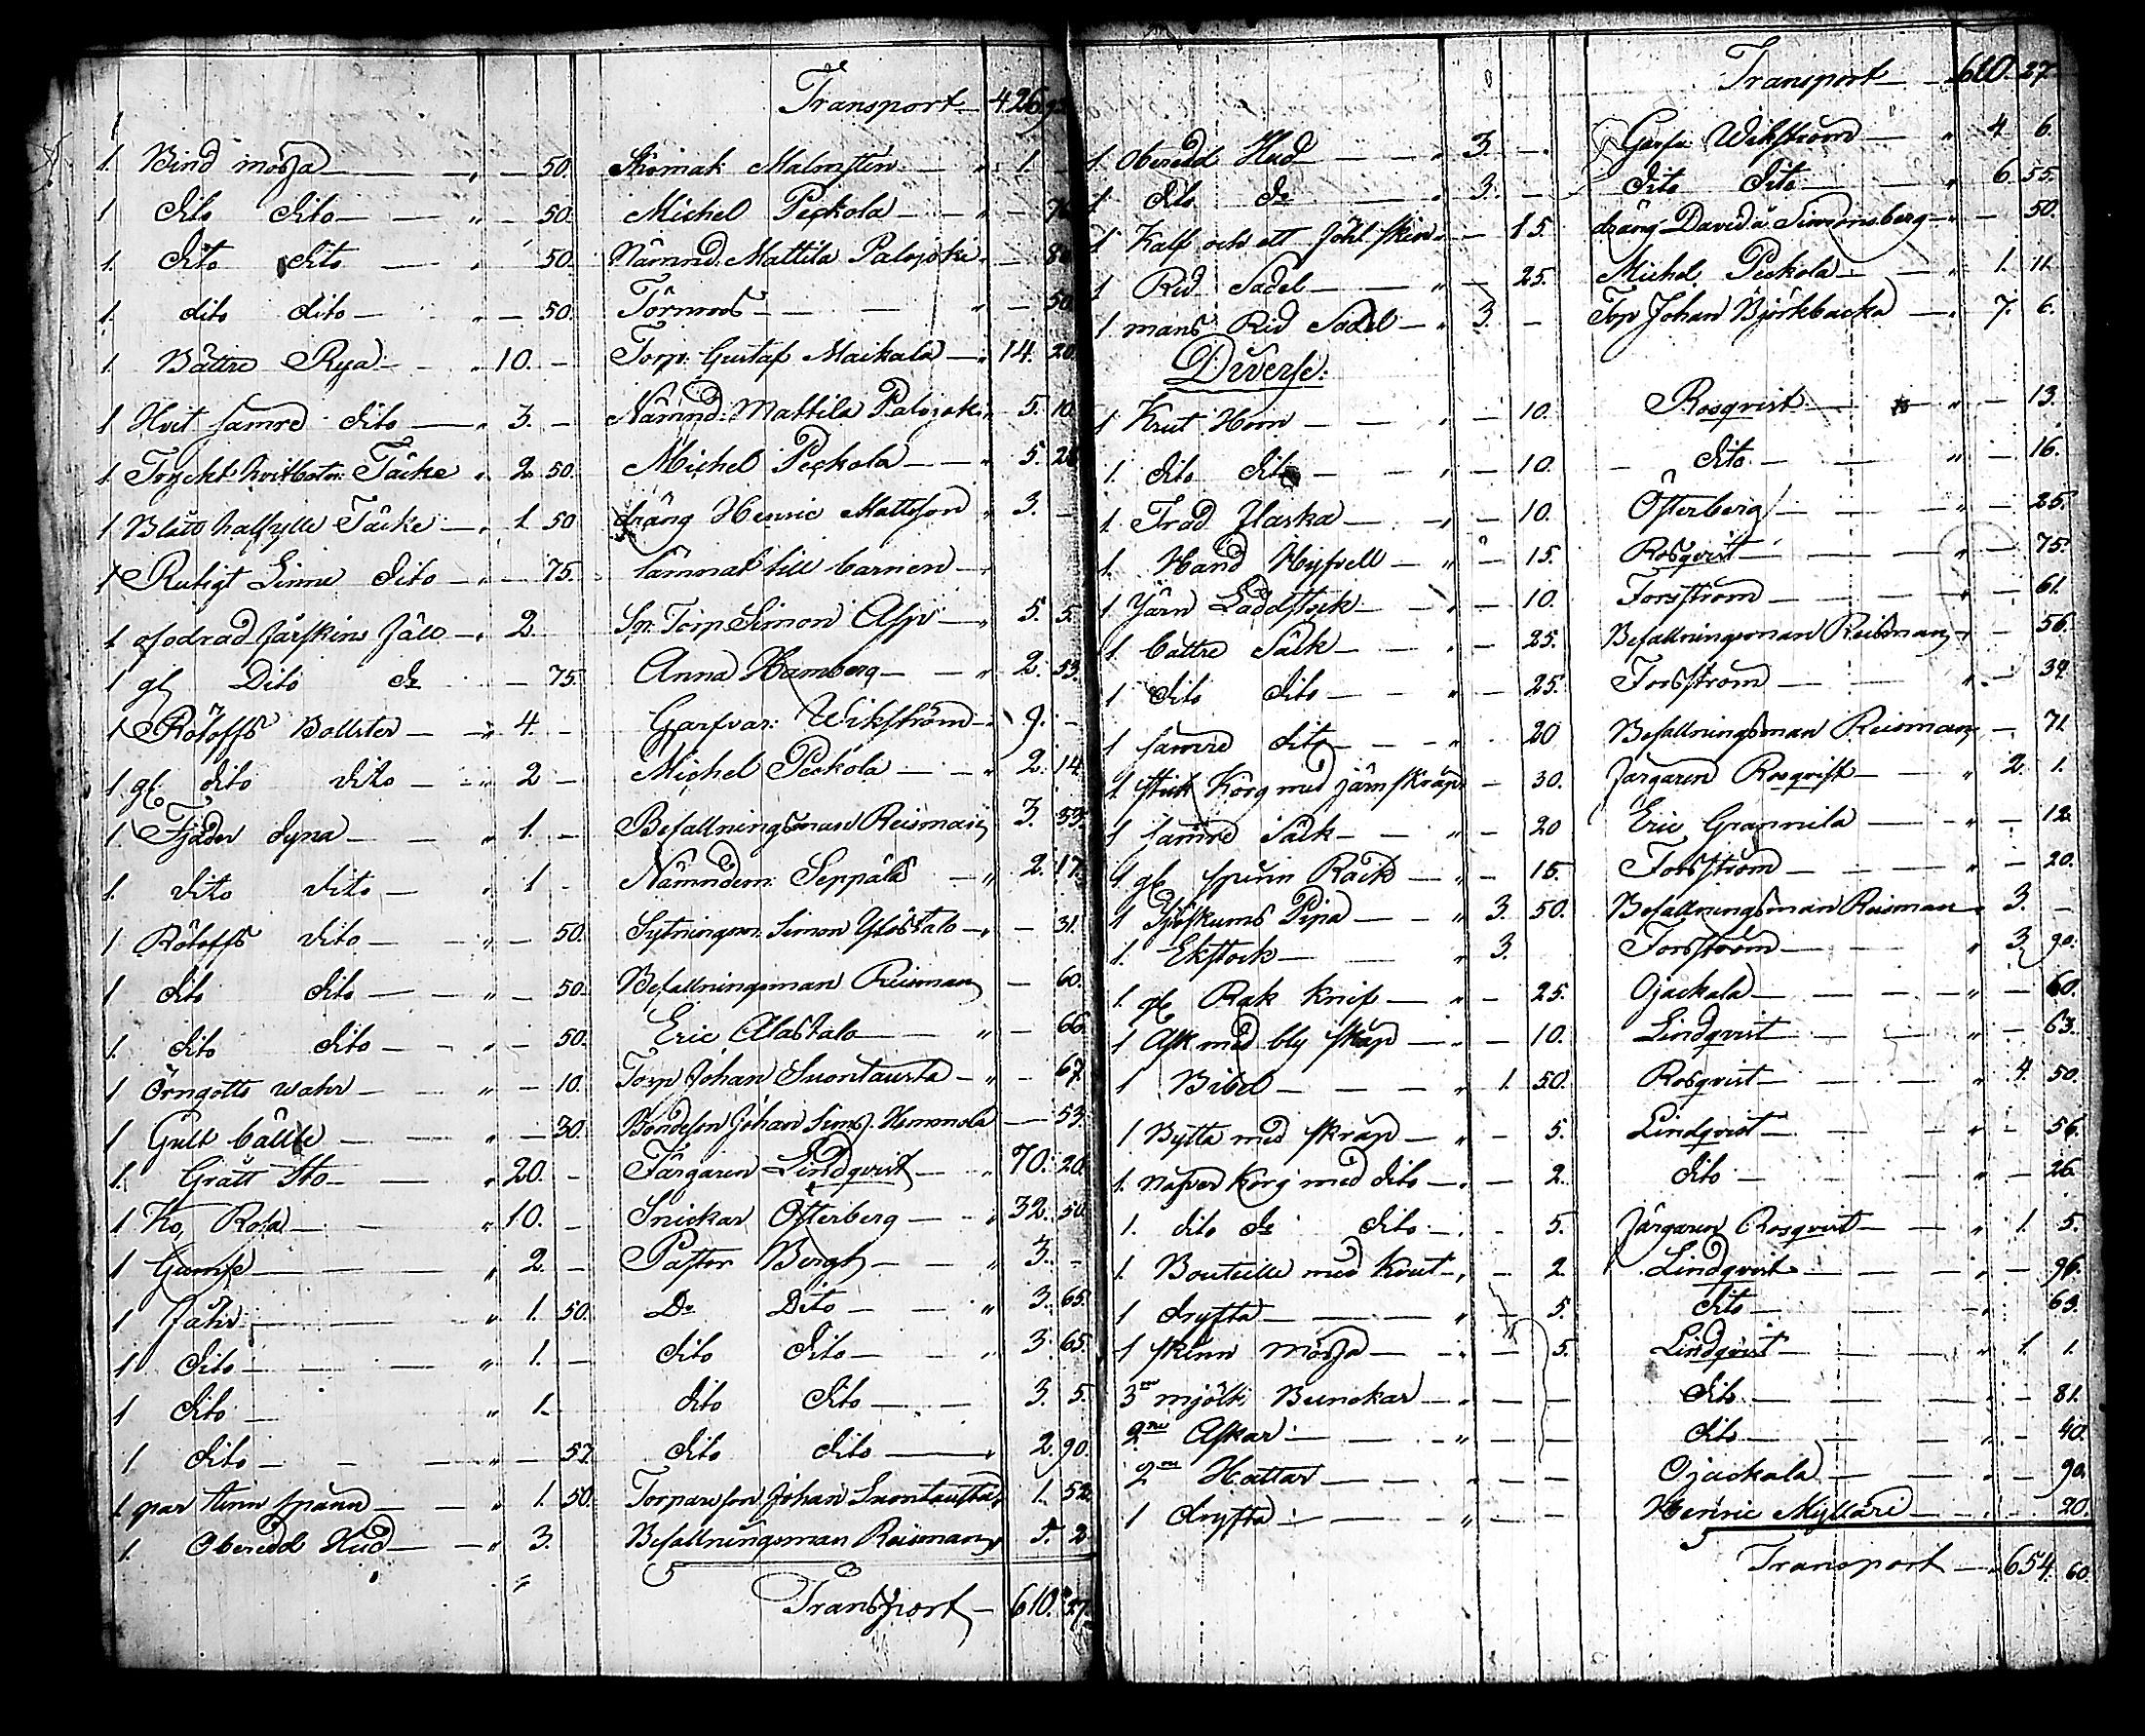 Transport — 426.
1. Bind mössa — " — 50. Skomak Malmsten — " 1. —
1 dito dito — " — 50. Michel Peckola — " —
1. dito dito — " 50. Nämnd: Mattila Palojoki — 
1. dito dito — " — 50. Törnroos — " — 50
1. Bättre Rya — " 10. — Torp: Gustaf Maikala — " 14. 20.
1 Hvit sämre dito — " 3. — Nämnd: Mattila Palojoki " 5. 10.
1. Tryckt hvitbotn: Täcke " 2 50. Michel Peckola — " 5.
1 Blått halfylle Täcke — " 1 50 dräng Henric Mattsson " 3. —
1 Rutigt Linne dito — " — 75. lämnat till barnen —
1 ofodrad fårskins fäll — " 2. Torp. Simon Asp — " 5. 5.
1 gl Dito do — 75. Anna Hamberg — " 2. 53.
1 Rötoffs Bollster — " 4. — Garfvar: Wikström — " 9. —
1. gl. dito dito — " 2 — Michel Peckola — " 2. 14.
1. Fjäder dyna — " 1. — Befallningsman Reisman 3. 53.
1. dito dito — " 1 — Nämndem: Seppälä — " 2. 17.
1 Rötoffs dito — " — 50. Sytningsm: Simon Ylöstalo — " — 31.
1 dito dito — " — 50. Befallningsman Reisman — 60.
1. dito dito — " — 50. Eric Alastalo — " — 66.
1 Örngotts wahr — " — 10. Torp Johan Suontausta — " — 67.
1 Gult bälte — " — 30. Bondeson Johan Sims: Hemmola — 53.
1. Grått Sto — " 20. — Färgaren Lindqvist — " 70. 20.
1 Ko, Rosa — " 10. — Snickar Österberg — " 32. 50.
1 Gumse — " 2. — Pastor Bergh — " 3. —
1 Fåhr — " 1. 50. Do Dito — " 3. 65.
1 dito — " 1. — dito dito — " 3. 65.
1 dito — " 1. — dito dito — 3. 5.
1 dito — " — 57. dito dito — " 2. 90.
1. par tinn spänn — " 1. 50. Torpareson Johan Suontausta " 1. 52
1. Oberedd Hud — " 3. Befallningsman Reisman " 5. 2.
Transport — 610. 27.
Transport — 610. 27.
1. Oberedd Hud — " 3. — Garfv: Wikström — " 4 6.
1 dito do " 3. — dito dito — " 6. 55.
1 Kalf och ett föhl skin — 15. dräng David å Simonsberg — " — 50.
1 Rid Sadel — " — 25. Michel Peckola — " 1. 11.
1 mans Rid Sadel — " 3. — Torp Johan Björkbacka — " 7. 6.
Diverse:
1 Krut Horn — " — 10. Rosqvist — " — 13.
1. dito dito — " — 10. dito — " — 16.
1. Träd Haska — " — 10. Österberg — " — 25.
1. Hand Hyfvell — " — 15. Rosqvist — " — 75.
1. Järn Laddstock — " — 10. Forsström — " — 61.
1 bättre Säck — " — 25. Befallningsman Reisman — 56.
1 dito dito — " — 25. Forsström — " — 34
1 sämre dito — " 20 Befallningsman Reisman — 71
1 stick Korg med järn skräp — 30. Färgaren Rosqvist — " 2. 1.
1 sämre Säck — " — 20 Eric Grannila — " — 12.
1 gl. spinn Råck — " — 15. Forsström — " — 20.
1 Sjöskums Pipa — " 3. 50. Befallningsman Reisman " 3 —
1. Ekstock — " 3. Forsström — " 3. 90.
1. gl Rak Knif — " — 25. Ojackala — " — 60.
1 Ask med bly skräp — " — 10. Lindqvist — " — 63.
1 Bibel — " 1. 50. Rosqvist — " 4. 50.
1 Bytta med skräp — " — 5. Lindqvist — " — 56.
1. näfver Korg med dito — " — 2. dito — " — 26
1. dito do dito — 5. Färgaren Rosqvist — " 1. 5.
1. Bouteille med Krut — " — 2. Lindqvist — " — 96.
1 dryfta — " — 5. dito — " 63.
1 skinn mössa — " — 5. Lindqvist — " 1. 1.
3ne mjölk Bunckar — " — — dito — " — 81.
2ne Askar — " — — dito — " — 40.
2ne Hattar — " — — Ojackala — " — 90.
1 dryfta — " — — Henric Mylläri — " — 20.
Transport — " 654. 60.